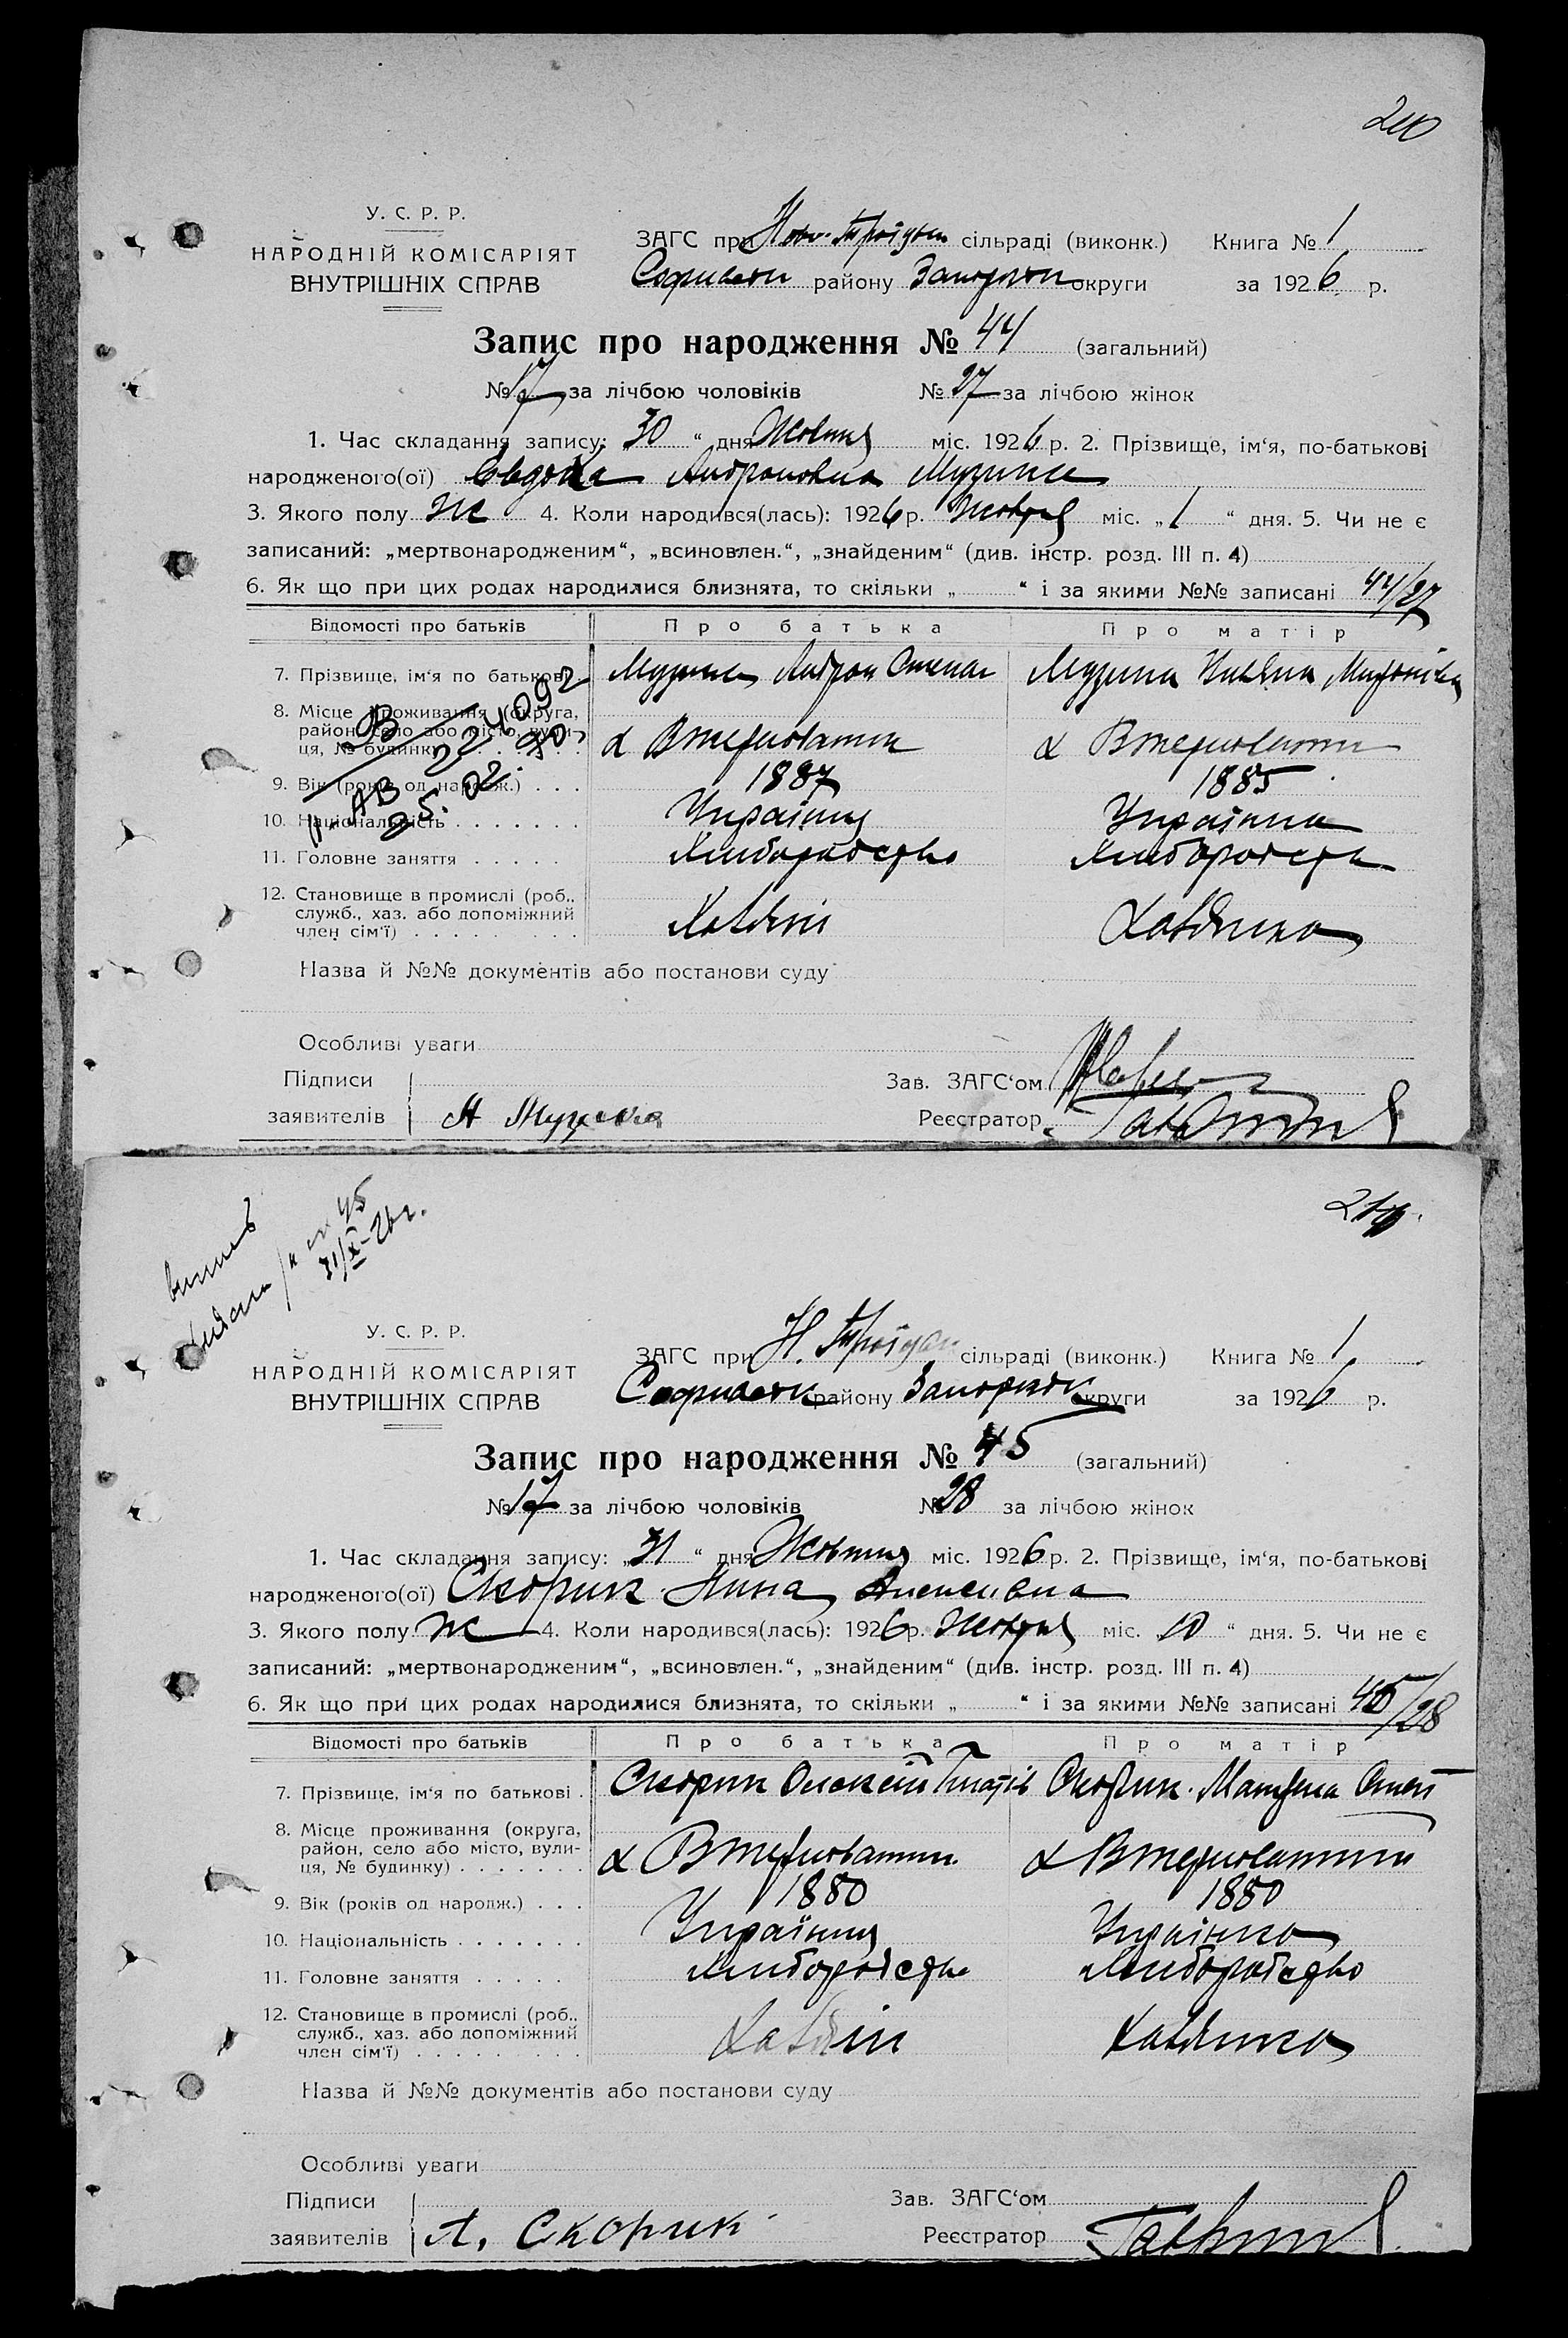 240
У. С. Р. Р.
НАРОДНІЙ КОМІСАРІЯТ
ВНУТРІШНІХ СПРАВ
ЗАГС при Ново-Троїцьк сільраді (виконк.) Книга № 1
Софиевськ району Запоріжськ округи за 1926 р.
Запис про народження № 44 (загальний)
№ 17 за лічбою чоловіків № 27 за лічбою жінок
1. Час складання запису: 30 “ дня Жовтня міс. 1926 р. 2. Прізвище, ім‘я, по-батькові
народженого(ої) Андроновна Музика
3. Якого полу Ж 4. Коли народився(лась): 1926 р. Жовтня міс. „ 1 “ дня. 5. Чи не є
записаний: „мертвонародженим“, „всиновлен.“, „знайденим“ (див. інстр. розд. III п. 4)
6. Як що при цих родах народилися близнята, то скільки „ “ і за якими №№ записані 44/27
Відомості про батьків Про батька Про матір
7. Прізвище, ім‘я по батькові . Музика Андрон Степан Музика
8. Місце проживання (округа,
район, село або місто, вули-
ця, № будинку)
9. Вік (років од народж.) . . . 1887 1885
10. Національність . . . . . . . Українец Українка
11. Головне заняття . . . . . Хліборобство Хліборобств
12. Становище в промислі (роб.,
служб., хаз. або допоміжний
член сім‘ї) . . . . . . . . . Хазяін Хазяйка
Назва й №№ документів або постанови суду
Особливі уваги
Підписи Зав. ЗАГС‘ом
заявителів А Музыка Реєстратор
214
45
31/X-26 г.
У. С. Р. Р.
НАРОДНІЙ КОМІСАРІЯТ
ВНУТРІШНІХ СПРАВ
ЗАГС при Н. Троїцьк сільраді (виконк.) Книга № 1
Софиевськ району Запоріжськ округи за 1926 р.
Запис про народження № 45 (загальний)
№ 17 за лічбою чоловіків № 28 за лічбою жінок
1. Час складання запису: „ 31 “ дня Жовтня міс. 1926 р. 2. Прізвище, ім‘я, по-батькові
народженого(ої) Скорик Нина Алексиевна
3. Якого полу Ж 4. Коли народився(лась): 1926 р. Жовтня міс. 10 “ дня. 5. Чи не є
записаний: „мертвонародженим“, „всиновлен.“, „знайденим“ (див. інстр. розд. III п. 4)
6. Як що при цих родах народилися близнята, то скільки „ “ і за якими №№ записані 45/28
Відомості про батьків Про батька Про матір
7. Прізвище, ім‘я по батькові . Скорик Олексій Скорик
8. Місце проживання (округа,
район, село або місто, вули-
ця, № будинку) . . . . . . .
9. Вік (років од народж.) . . . 1880 1880
10. Національність . . . . . . . Українец Українка
11. Головне заняття . . . . . Хліборобство Хліборобство
12. Становище в промислі (роб.,
служб., хаз. або допоміжний
член сім‘ї) . . . . . . . . . Хазяін Хазяйка
Назва й №№ документів або постанови суду
Особливі уваги
Підписи Зав. ЗАГС‘ом
заявителів А. Скорик Реєстратор